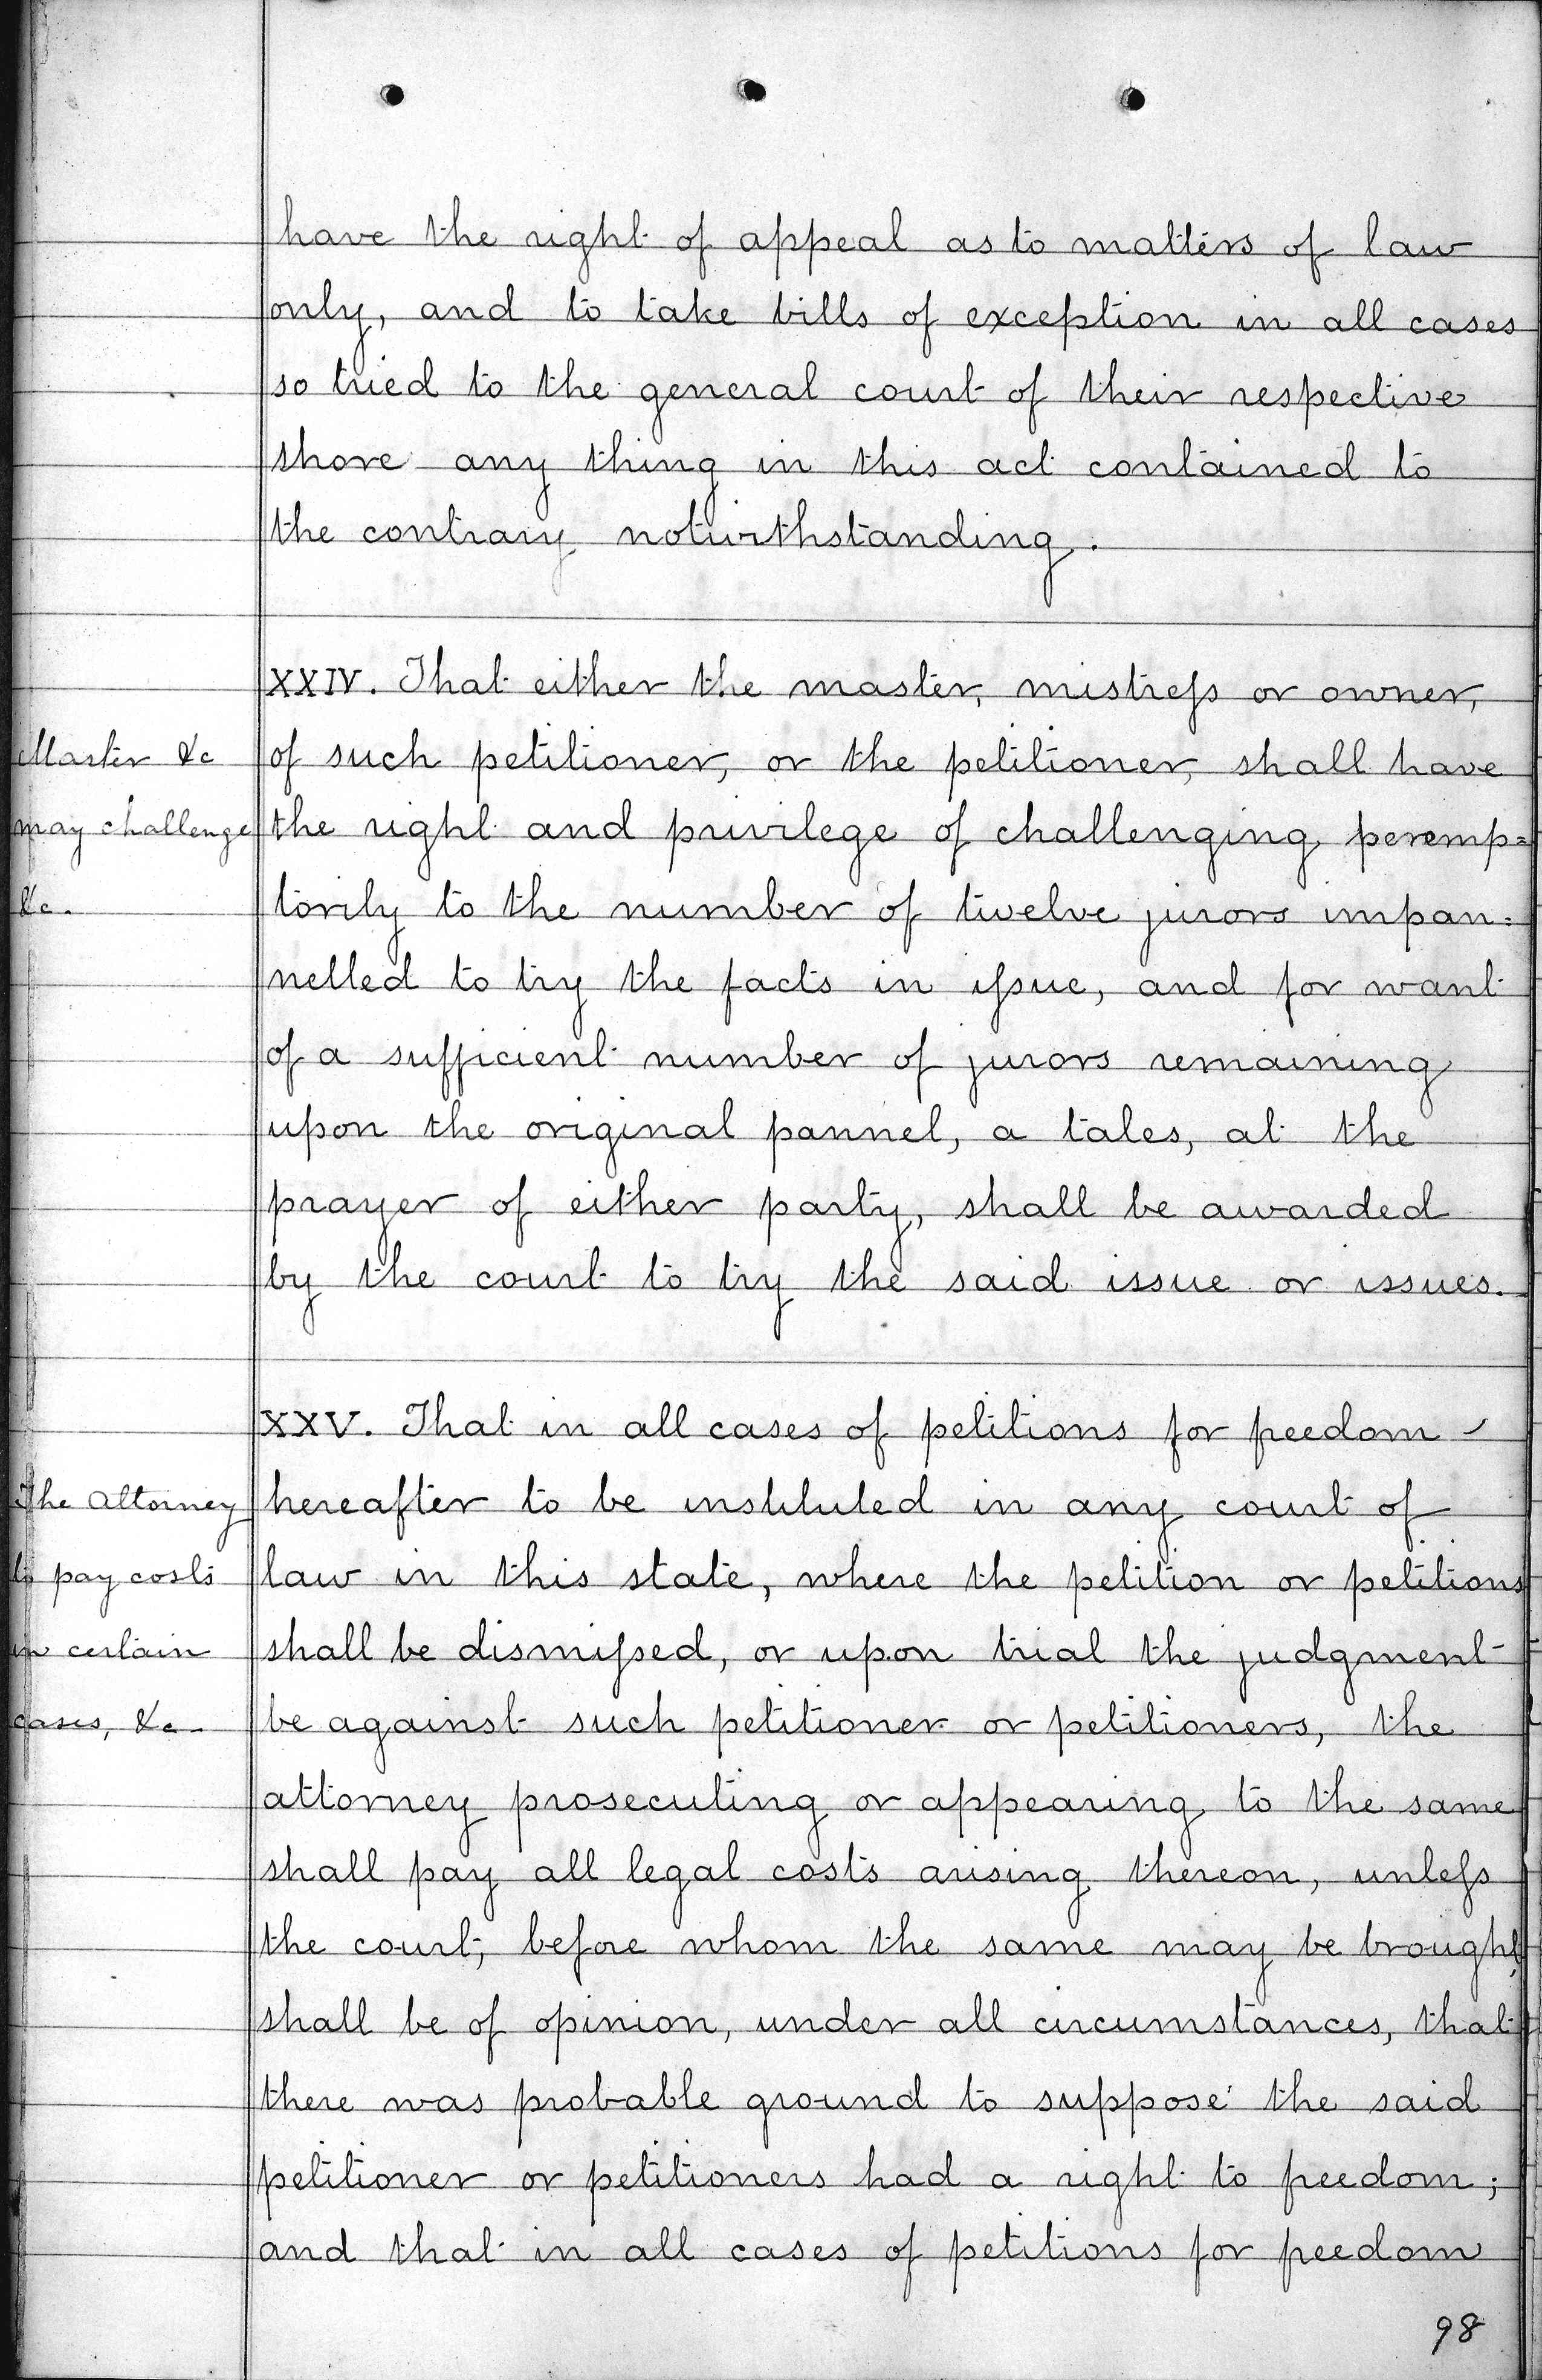 have the right of appeal as to matters of law
only, and to take bills of exception in all cases
so tried to the general court of their respective
shore any thing in this act contained to
the contrary notwithstanding.
XXIV. That either the master, mistreſs or owner,
Master &c
of such petitioner, or the petitioner, shall have
may challenge
the right and privilege of challenging peremp=
&c.
torily to the number of twelve jurors impan=
nelled to try the facts in iſsue, and for want
of a sufficient number of jurors remaining
upon the original pannel, a tales, at the
prayer of either party, shall be awarded
by the court to try the said issue or issues.
XXV. That in all cases of petitions for freedom
The Attorney
hereafter to be instituted in any court of
to pay costs
law in this state, where the petition or petitions
in certain
shall be dismiſsed, or upon trial the judgment
cases, &c.
be against such petitioner or petitioners, the
attorney prosecuting or appearing to the same
shall pay all legal costs arising thereon, unleſs
the court, before whom the same may be brought,
shall be of opinion, under all circumstances, that
there was probable ground to suppose the said
petitioner or petitioners had a right to freedom;
and that in all cases of petitions for freedom
98